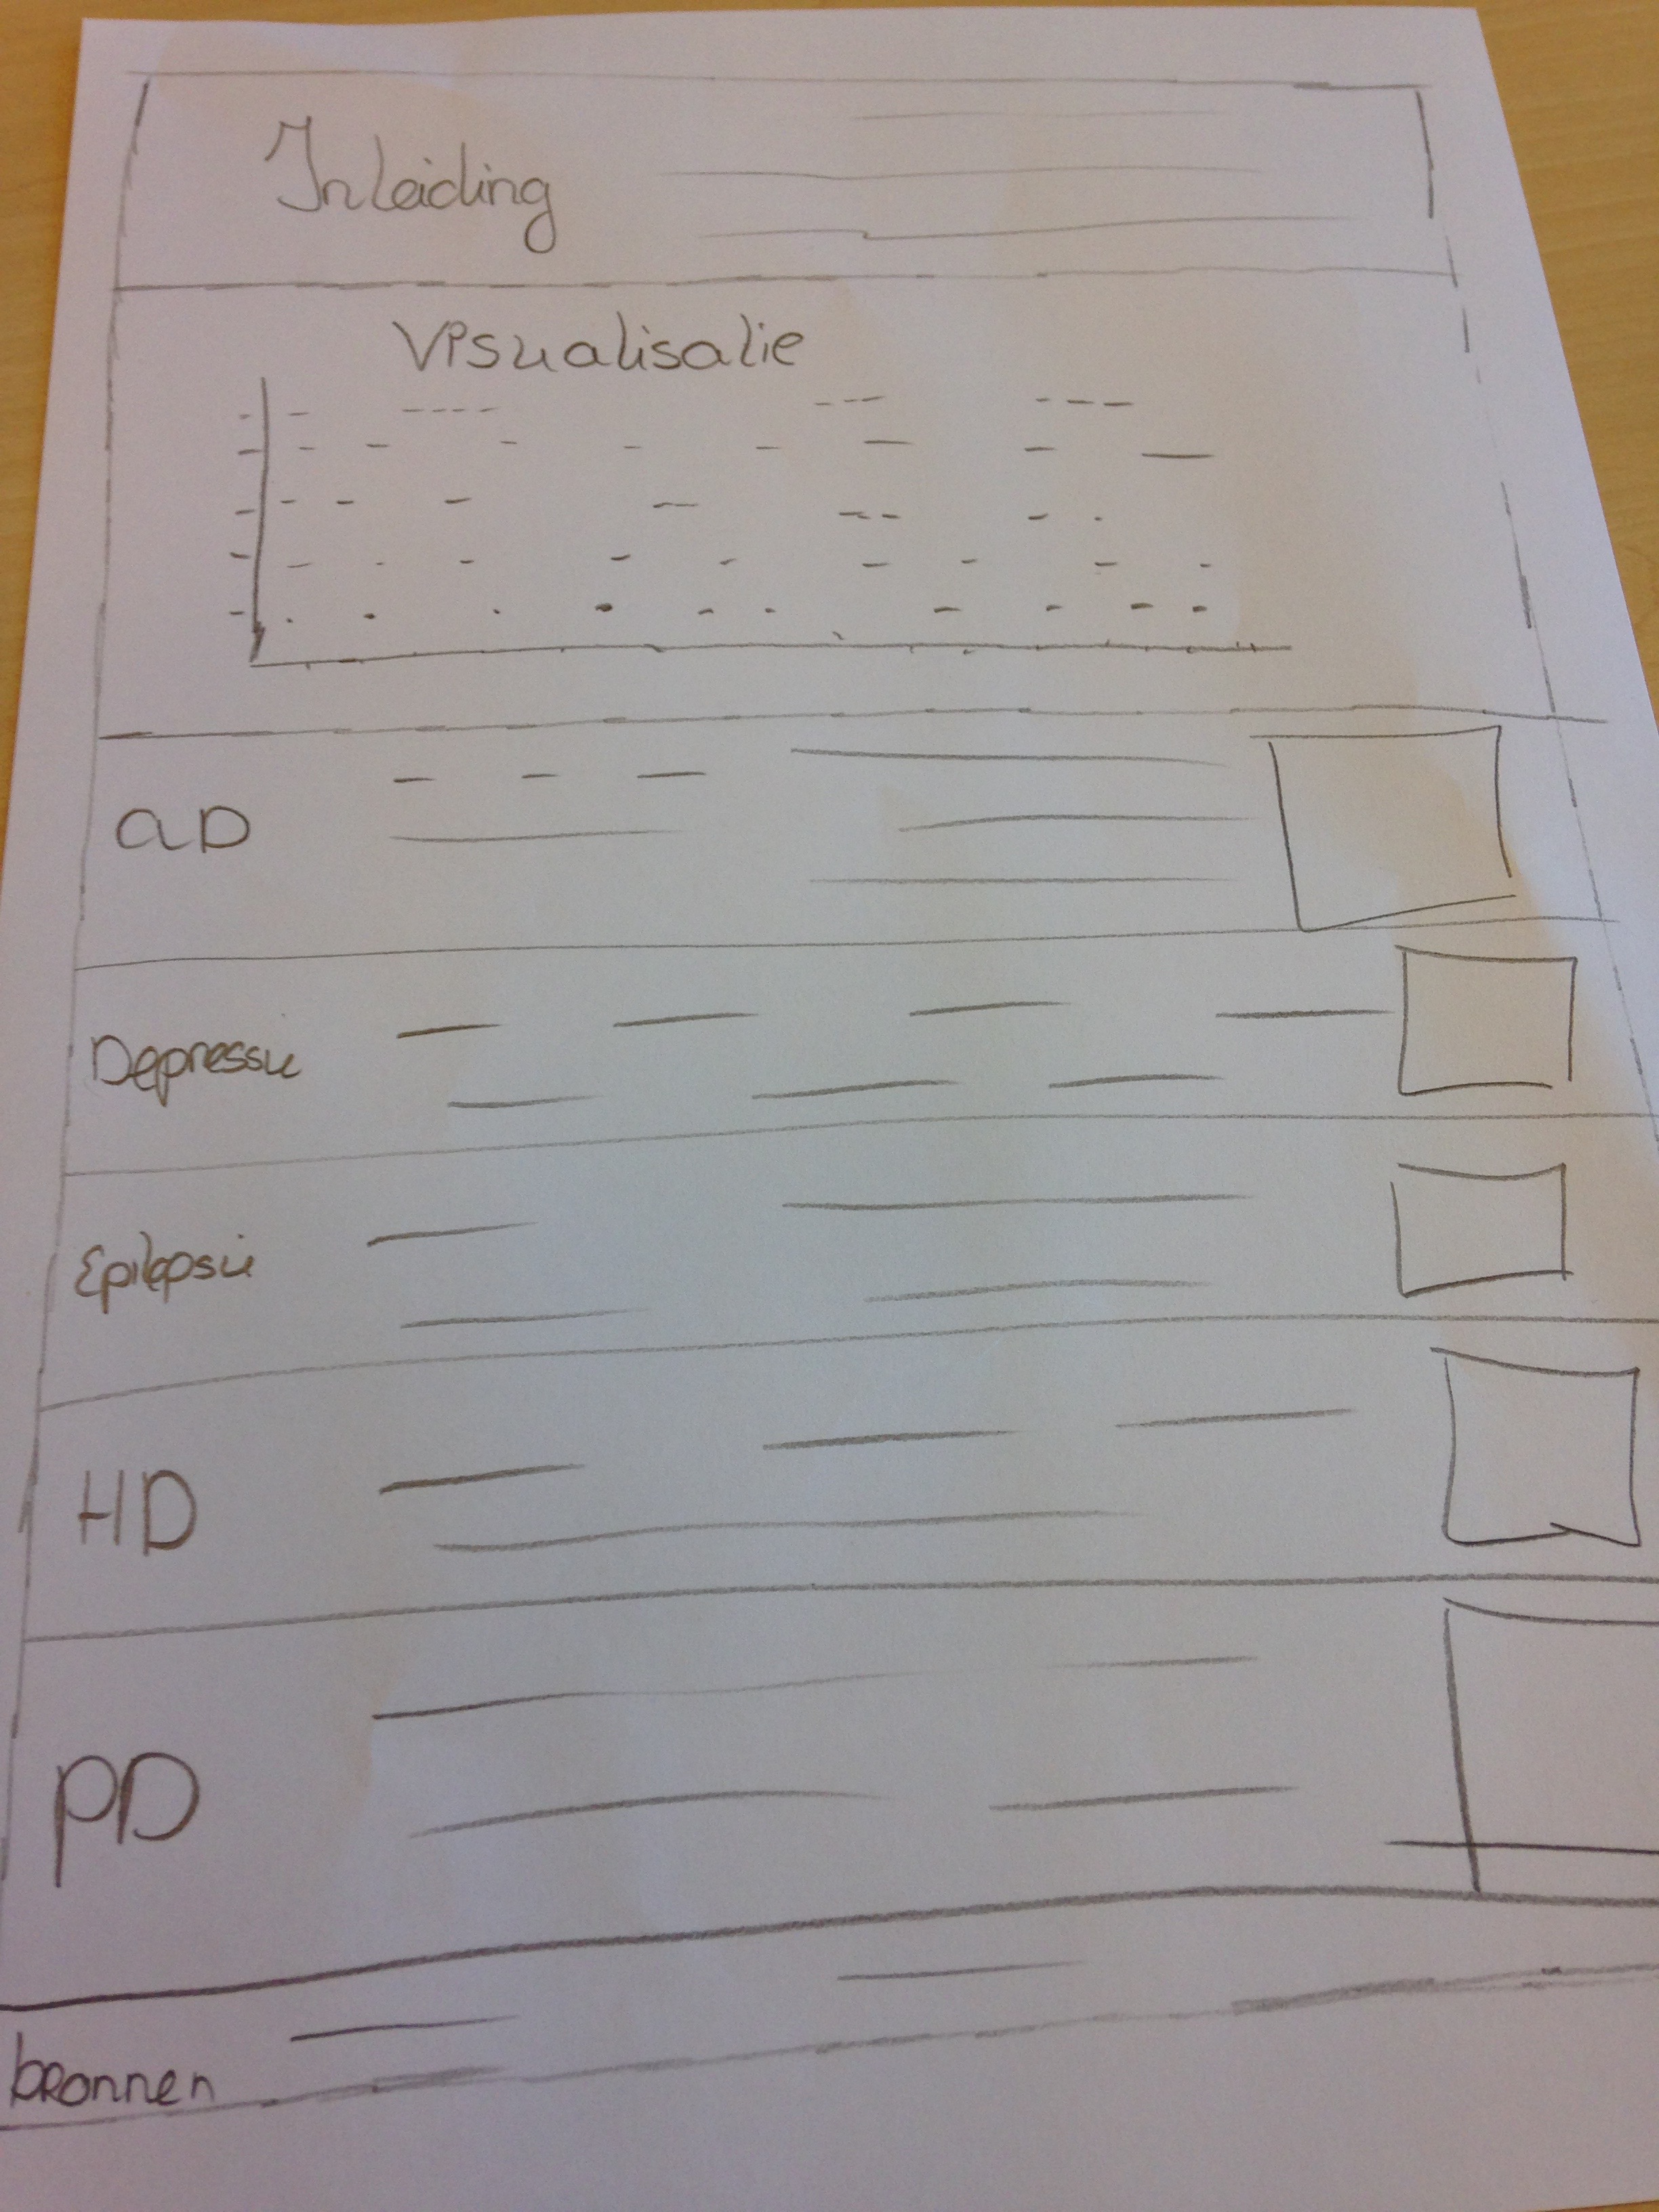 Inleiding
Visualisatie
AD
Depressie
Epilepsie
HD
PD
bronnen